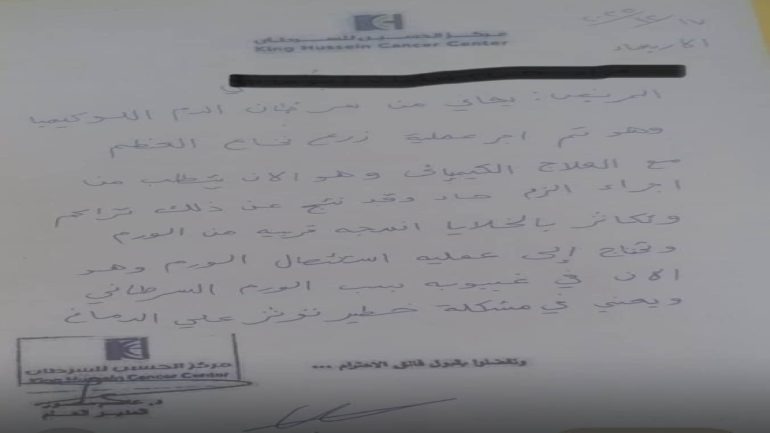 مركز الحسين للسرطان
King Hussein Cancer Center
٢٠٢٥/١٢/١٧
الأربعاء
المريض: يعاني من سرطان الدم اللوكيميا
وهو تم اجر عملية زرع نخاع العظم
مع العلاج الكيميائي وهو الان يتطلب من
اجراء الزم حاد وقد نتج عن ذلك تراكم
وتكاثر بالخلايا انسجه قريبه من الورم
وتحتاج إلى عمليه استئصال الورم وهو
الان في غيبوبه بسبب الورم السرطاني
ويعني في مشكلة خطير تؤثر علي الدماغ
وتفضلوا بقبول فائق الاحترام ...
مركز الحسين للسرطان
King Hussein Cancer Center
المدير العام